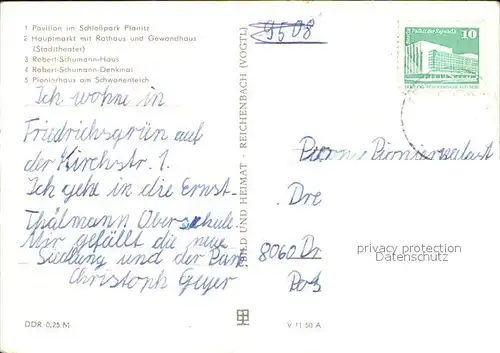 1 Pavillon im Schloßpark Planitz
2 Hauptmarkt mit Rathaus und Gewandhaus
(Stadttheater)
3 Robert-Schumann-Haus
4 Robert-Schumann-Denkmal
5 Pionierhaus am Schwanenteich
Ich wohne in
Friedrichsgrün auf
der Kirchstr. 1.
Ich gehe in die Ernst-
Thälmann Oberschule.
Mir gefällt die neue
Siedlung und der Park
Christoph Geyer
DDR 0,25 M
BILD UND HEIMAT · REICHENBACH (VOGTL)
V 11 50 A
9508
Palast der Republik
10
Pionierpalast
Dre
8060 Dr
privacy protection
Datenschutz